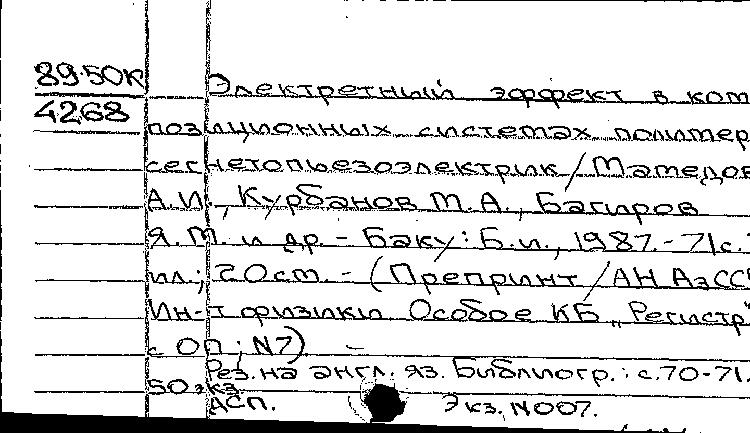 89-50К
4268
Электретный эффект в ком
позиционных системах полимер
сегнетопьезоэлектрик/Мамедов
А.И., Курбанов М.А., Багиров
Я.М. и др. - Баку: Б.и., 1987. - 71с.:
ил.; 20см. - (Препринт/АН АзССР
Ин-т физики Особое КБ „Регистр"
с ОП; N7). -
Рез. на англ. яз. Библиогр.: с.70-71.
50 экз.
АСП. Экз. N007.